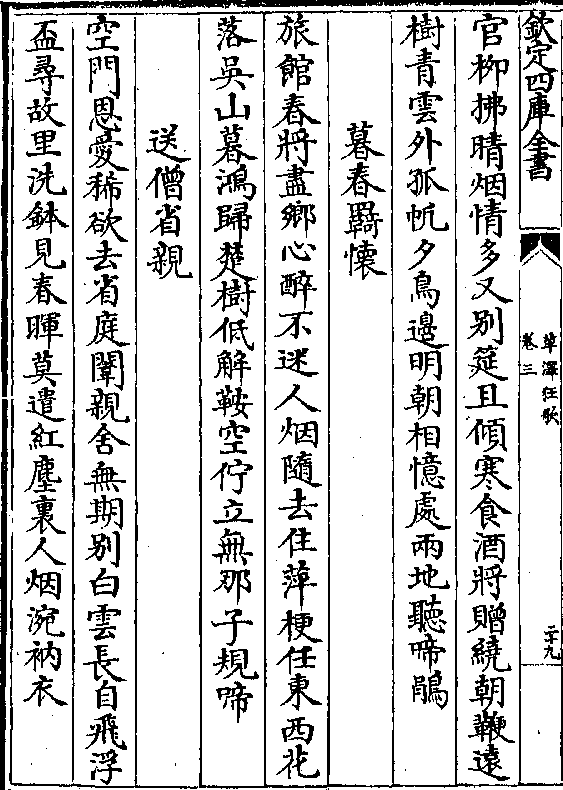 欽定四庫全書
草澤狂歌
卷三
二十九
官柳拂晴烟情多又别筵且傾寒食酒將贈繞朝鞭遠
樹青雲外孤帆夕鳥邉明朝相憶處兩地聽啼鵑
暮春羇懷
旅館春將盡鄉心醉不迷人烟隨去住萍梗任東西花
落吳山暮鴻歸楚樹低解鞍空佇立無那子規啼
送僧省親
空門恩愛稀欲去省庭闈親舍無期别白雲長自飛浮
盃尋故里洗鉢見春暉莫遣紅塵裏人烟涴衲衣